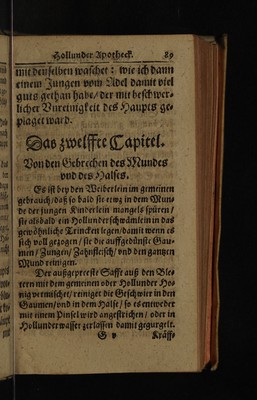 Hollunder Apotheck. 89
mit denselben waschet: wie ich dann
einem Jungen vom Adel damit viel
guts gethan habe / der mit beschwer-
licher Unreinigkeit des Haupts ge-
plaget ward.
Das zwelffte Capitel.
Von den Gebrechen des Mundes
und des Halses.
Es ist bey den Weiberlein im gemeinen
gebrauch / daß so bald sie etwz in dem Mun
de der jungen Kinderlein mangels spüren /
sie alsbald ein Hollunderschwämlein in das
gewöhnliche Trincken legen / damit wenn es
sich voll gezogen / sie die auffgedünste Gau-
men / Zungen / Zahnfleisch / und den gantzen
Mund reinigen.
Der außgepreste Safft auß den Ble-
tern mit dem gemeinen oder Hollunder Ho-
nig vermischet / reiniget die Geschwier in den
Gaumen / und in dem Halse / so es entweder
mit einem Pinsel wird angestrichen / oder in
Hollunderwasser zerlassen damit gegurgelt.
G v Kräff-